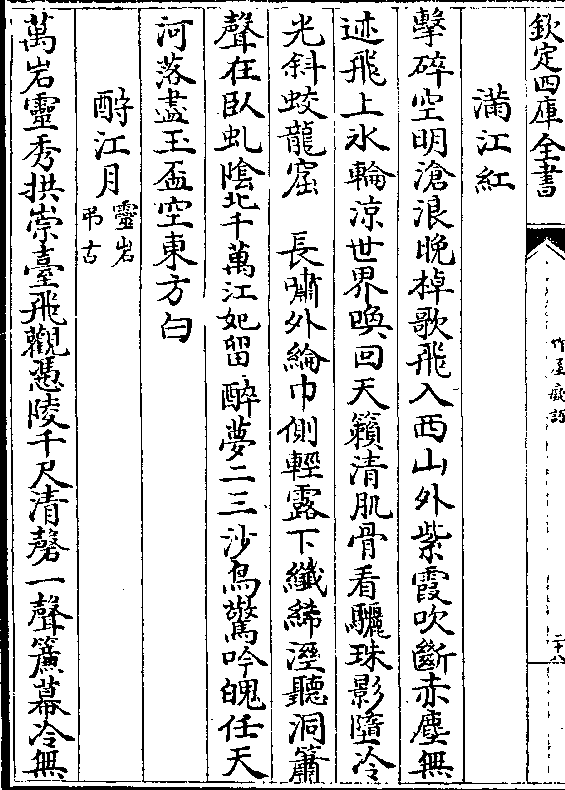 欽定四庫全書
滿江紅
擊碎空明滄浪晚棹歌飛入西山外紫霞吹斷赤塵無
迹飛上氷輪凉世界喚回天籟清肌骨看驪珠影墮冷
光斜蛟龍窟　長嘯外綸巾側輕露下纖絺溼聽洞簫
聲在臥虬陰北千萬江妃留醉夢二三沙鳥驚吟魄任天
河落盡玉盃空東方白
酹江月靈岩弔古
萬岩靈秀拱崇臺飛觀憑陵千尺清磬一聲簾幕冷無
竹屋癡語
二十八